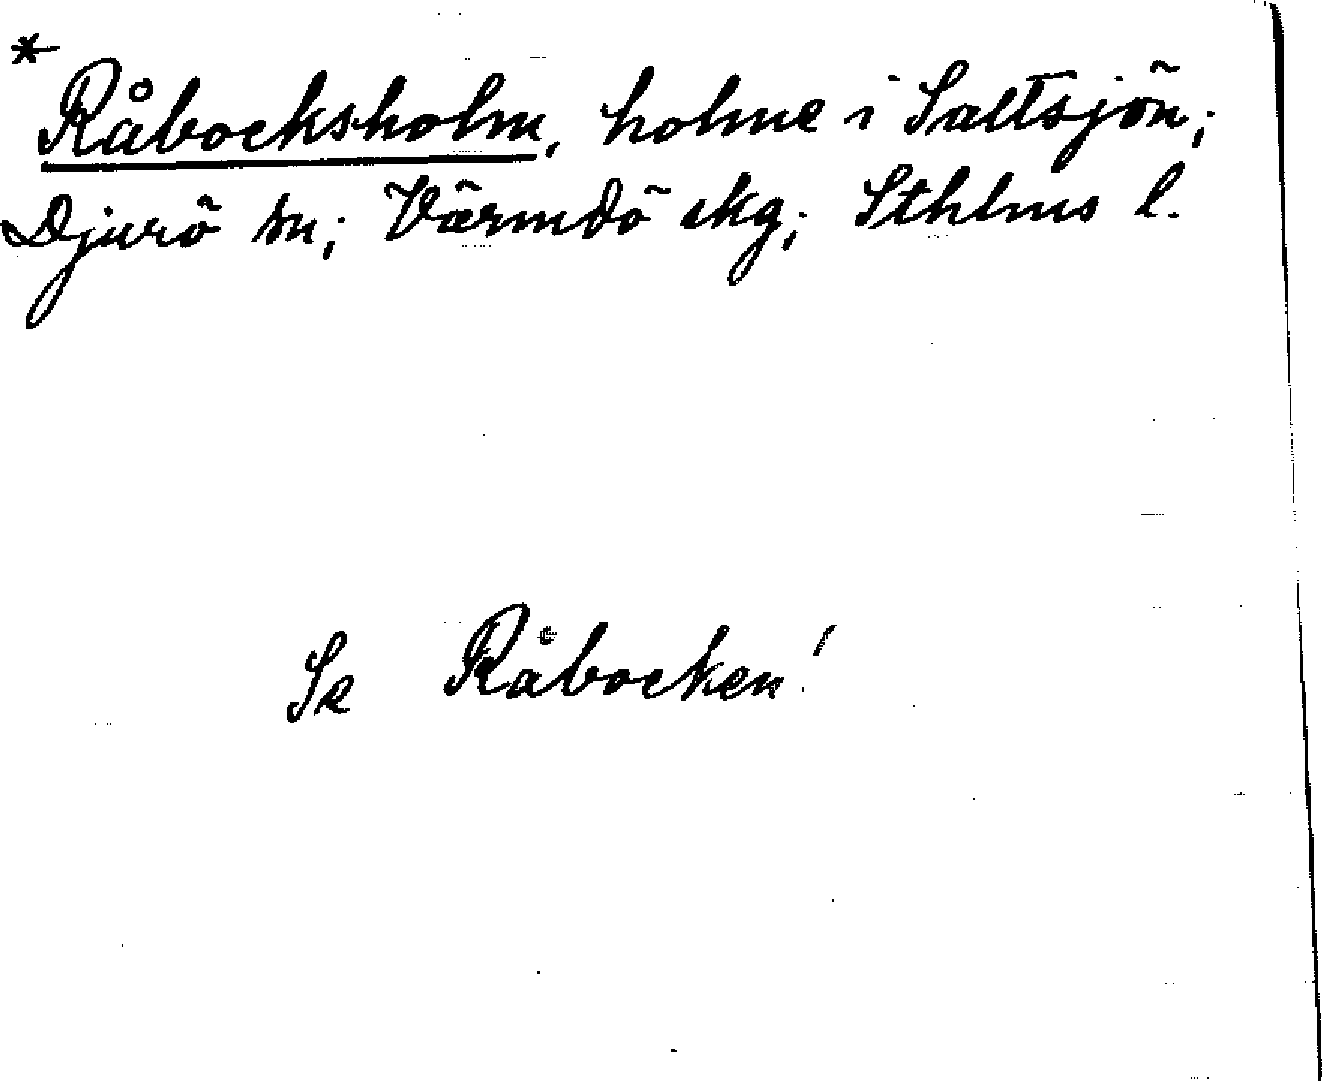 * Råbocksholm, holme i Saltsjön;
Djurö sn; Värmdö skg; Sthlms l.
Se Råbocken!